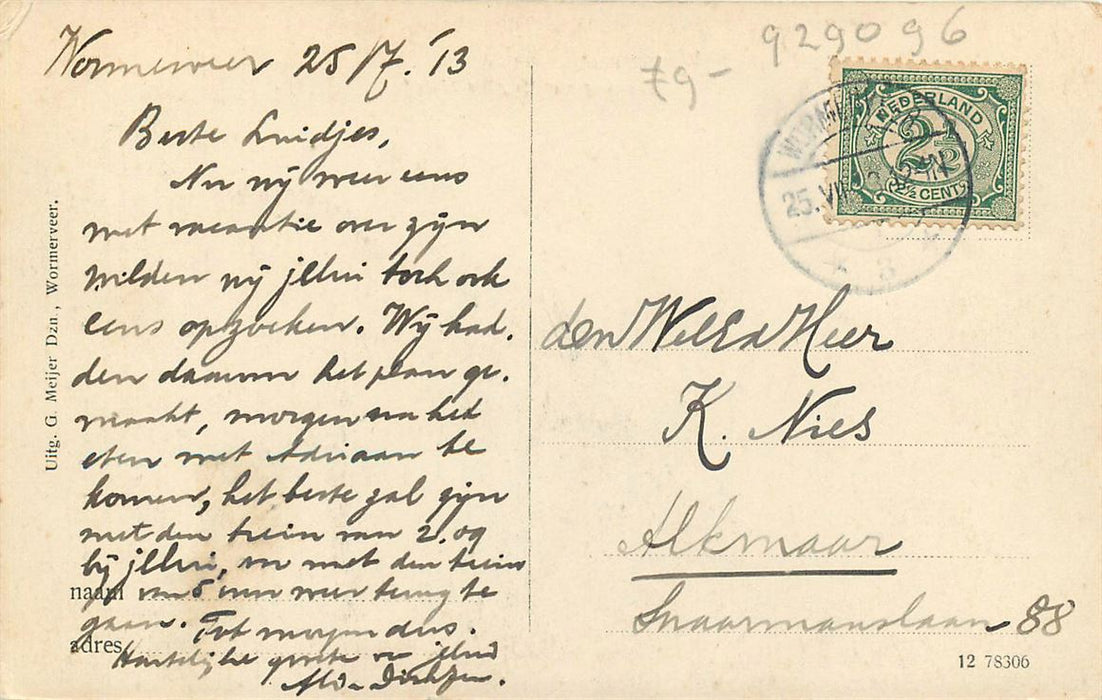 Wormerveer 25/7.'13
Beste Luidjes,
Nu wij weer eens
met vacantie over zijn
wilden wij jellui toch ook
eens opzoeken. Wij had.
den daarom het plan ge.
maakt, morgen na het
eten met Adriaan te
komen, het beste zal zijn
met den trein van 2.09
bij jellui, en met den trein
van 5 uur weer terug te
gaan. Tot morgen dus.
Hartelijke groete v
naam
adres
Uitg. G. Meijer Dzn., Wormerveer.
929096
79-
NEDERLAND
2½
2½ CENT
WORMERVEER
25.VII 12-1N
3
den WelEd Heer
K. Nies
Alkmaar
Snaarmanslaan 88
12 78306